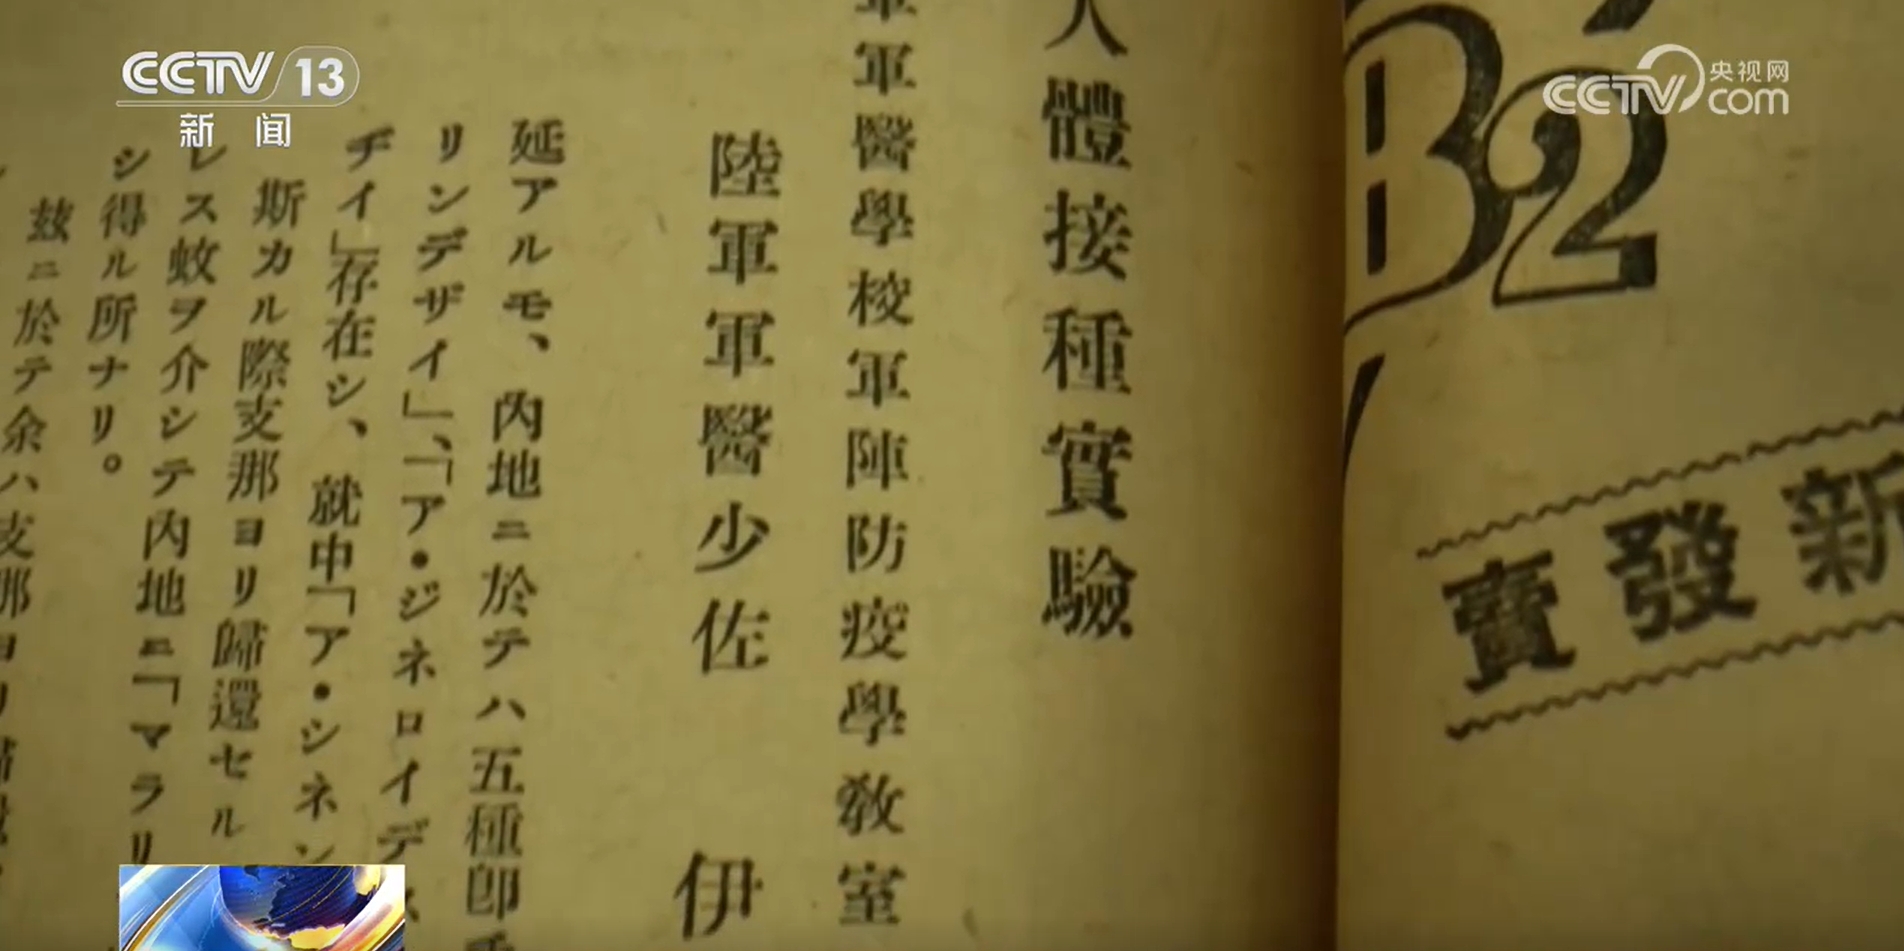 CCTV 13
新闻
央视网
CCTV com
B2
新發賣
人體接種實驗
軍軍醫學校軍陣防疫學教室
陸軍軍醫少佐 伊
延アルモ、內地ニ於テハ五種卽
リンデザイ」、「ア・ジネロイデ
チイ」存在シ、就中「ア・シネン
斯カル際支那ヨリ歸還セル
レス蚊ヲ介シテ內地ニ「マラリ
シ得ル所ナリ。
茲ニ於テ余ハ支那ヨリ歸還